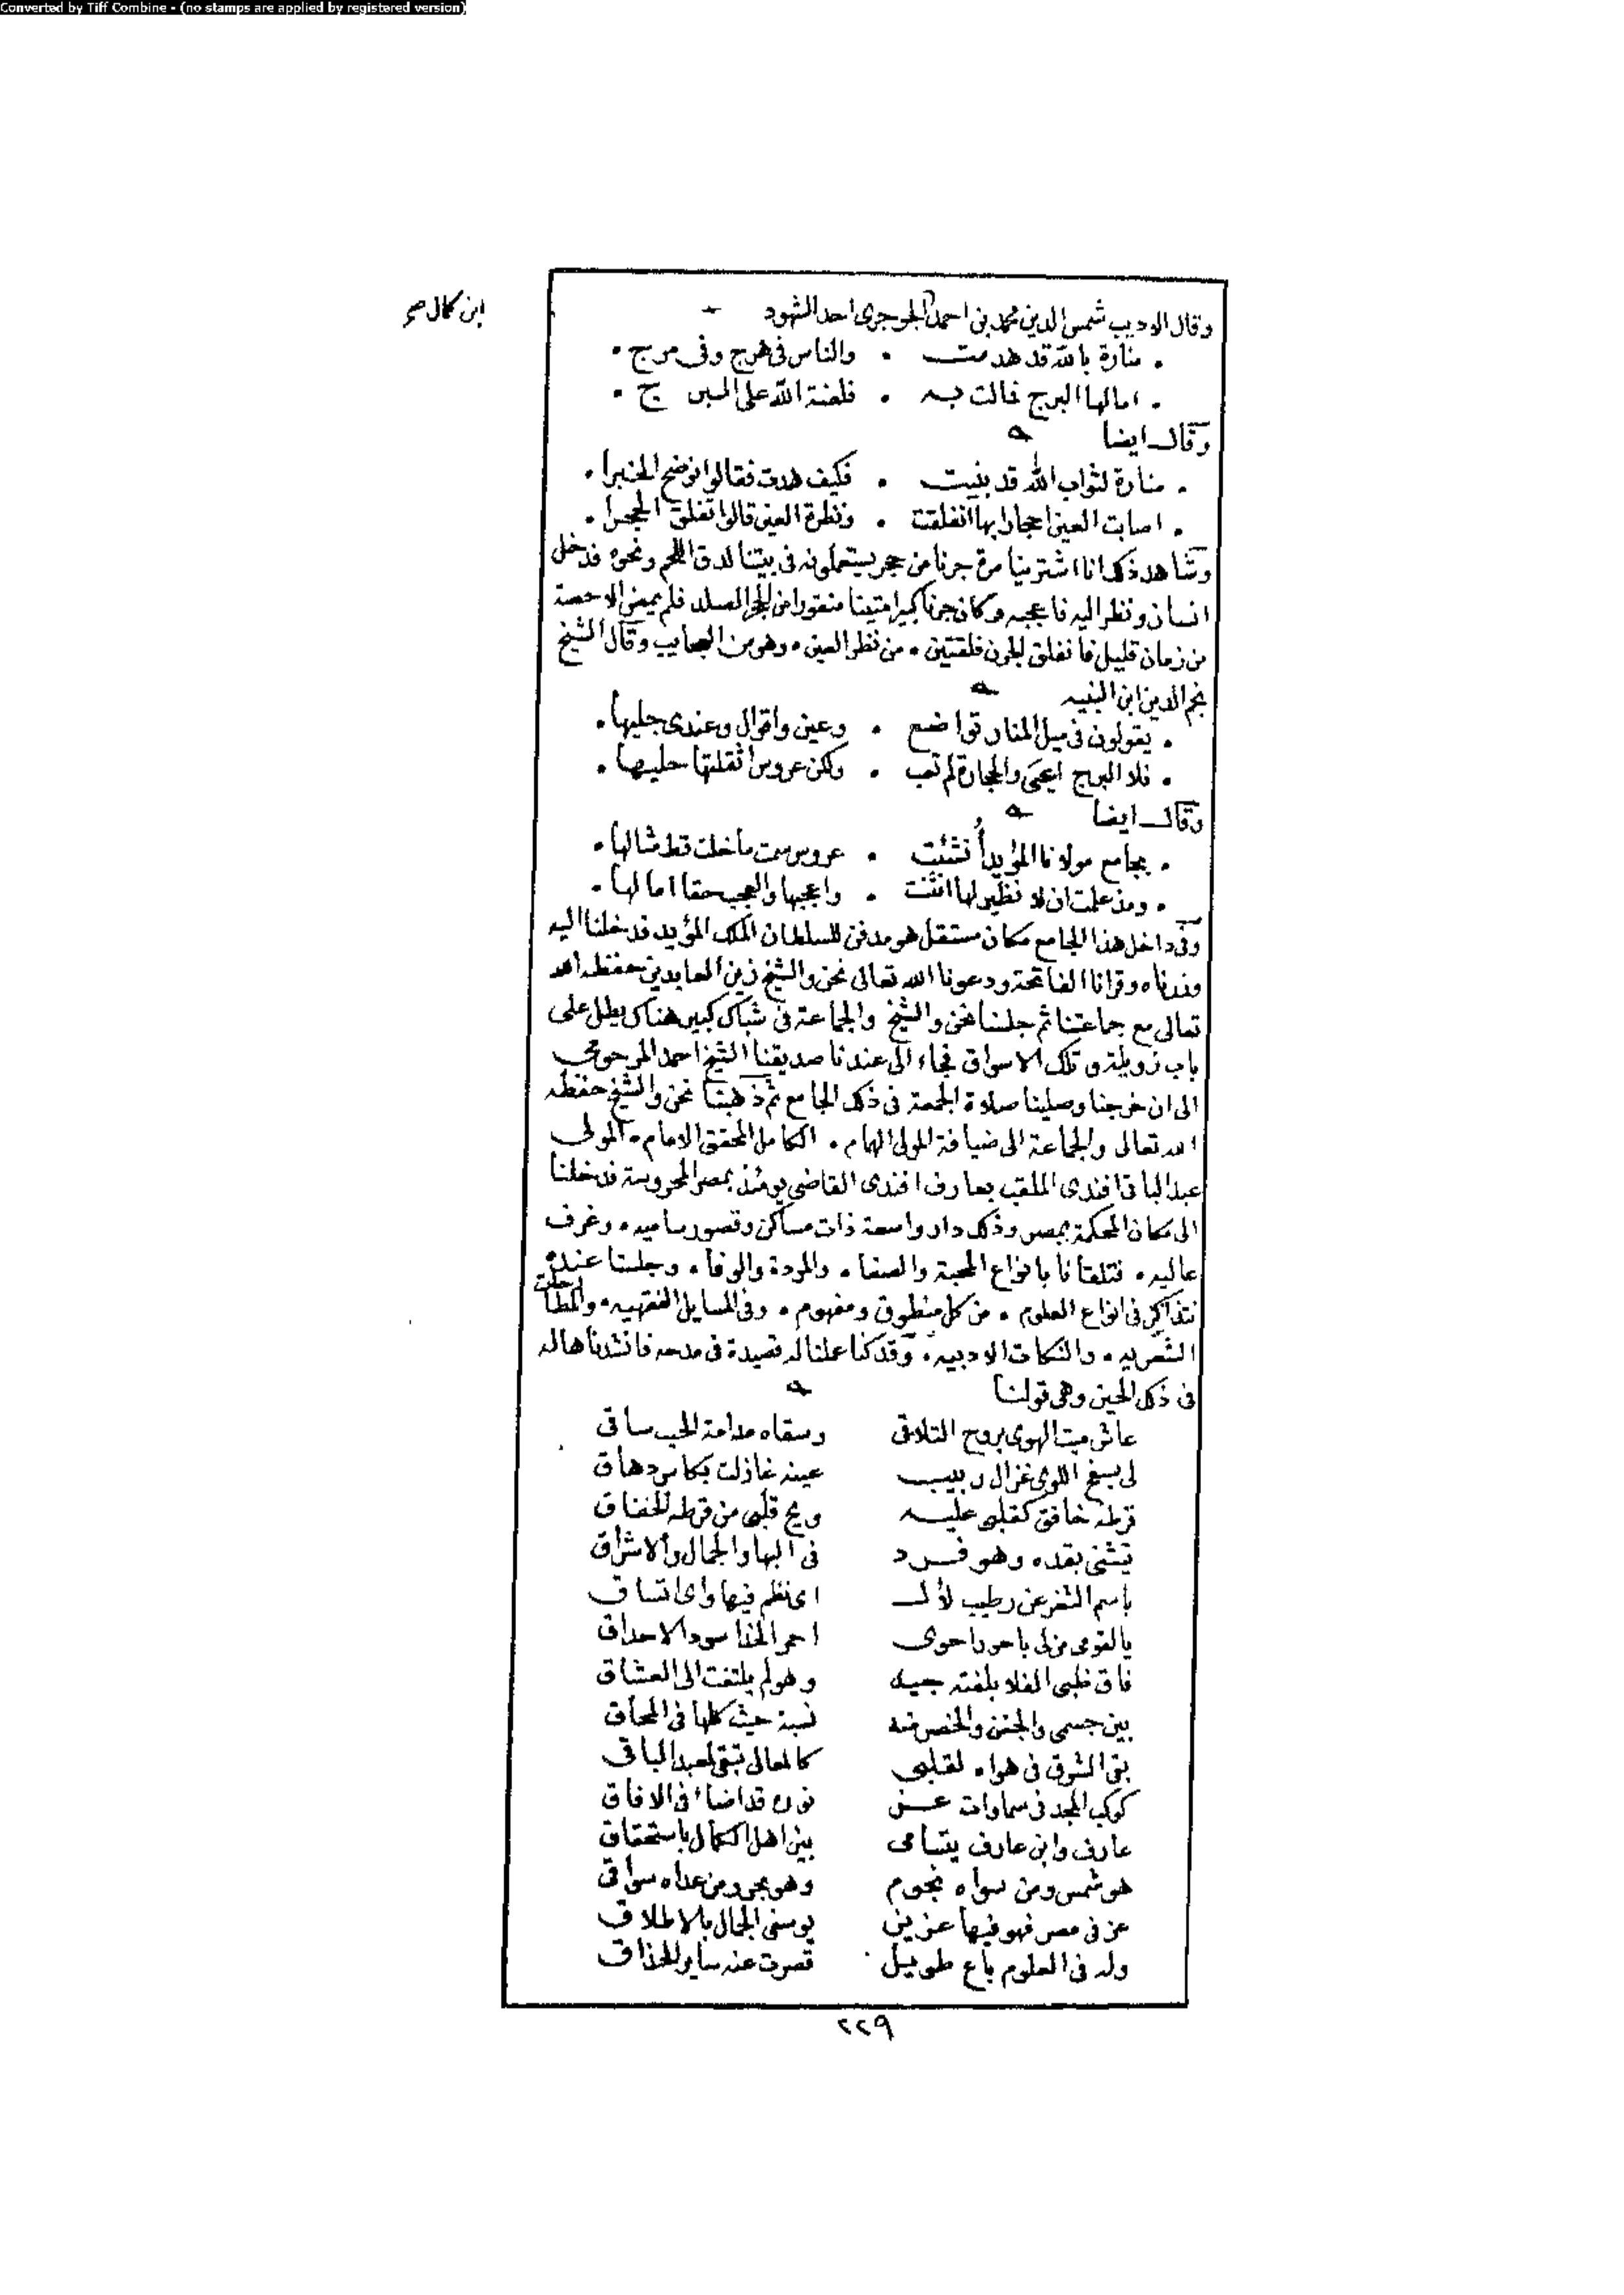 Converted by Tiff Combine - (no stamps are applied by registered version)
ابن كمال صح
وقال الاديب شمس الدين محمد بن احمد الجوجرى احد الشهود
• منارة بالله قد هدمت • والناس فى هرج وفى مرج •
• امالها البرج فمالت به • فلعنة الله على البرج •
وقال ايضا
• منارة لثواب الله قد بنيت • فكيف هدت فقالوا نوضح الخبرا •
• اصابت العين احجارا بها انفلقت • ونظرة العين قالوا تفلق الحجرا •
وشاهد ذلك انا اشترينا مرة جرنا من حجر يستعملونه فى بيتنا لدق اللحم ونحوه فدخل
انسان ونظر اليه فاعجبه وكان جرنا كبيرا متينا منقورا من الحجر الصلد فلم يمض الا حصة
من زمان قليل فانفلق الجرن فلقتين • من نظر العين • وهو من العجايب وقال الشيخ
نجم الدين ابن النبيه
• يقولون فى ميل المنار تواضع • وعين واقوال وعندى جليها •
• فلا البرج اعيى والحجارة لم تعب • ولكن عروس اثقلتها حليها •
وقال ايضا
• بجامع مولانا المؤيد أنشئت • عروس سمت ما خلت قط مثالها •
• ومذ علمت ان لا نظير لها انثنت • واعجبها والعجب حقا امالها •
وفى داخل هذا الجامع مكان مستقل هو مدفن للسلطان الملك المؤيد فدخلنا اليه
وزرناه وقرانا الفاتحة ودعونا الله تعالى نحن والشيخ زين العابدين حفظه الله
تعالى مع جماعتنا ثم جلسنا نحن والشيخ والجماعة فى شباك كبير هناك يطل على
باب زويلة وتلك الاسواق فجاء الى عندنا صديقنا الشيخ احمد المرحومى
الى ان خرجنا وصلينا صلاة الجمعة فى ذلك الجامع ثم ذهبنا نحن والشيخ حفظه
الله تعالى والجماعة الى ضيافة المولى الهمام • الكامل المحقق الامام • المولى
عبد الباقى افندى الملقب بعارف افندى القاضى يومئذ بمصر المحروسة فدخلنا
الى مكان المحكمة بمصر وذلك دار واسعة ذات مساكن وقصور ساميه • وغرف
عاليه • فتلقانا بانواع المحبة والصفا • والمودة والوفا • وجلسنا عنده
نتذاكر فى انواع العلوم • من كل منطوق ومفهوم • وفى المسايل الفقهيه • والمطارحات
الشعريه • والنكات الادبيه • وقد كنا عملنا له قصيدة فى مدحه فانشدناها له
فى ذلك الحين وهى قولنا
عاش ميت الهوى بروح التلاقى وسقاه مدامة الحب ساقى
لى بسفح اللوى غزال ربيب عينه غازلت بكاس دهاق
قرطه خافق كقلبى عليه ويح قلبى من قرطه الخفاق
يتثنى بقده وهو فرد فى البها والجمال والاشراق
باسم الثغر عن رطيب لأل اى نظم فيها واى اتساق
يالقومى من لى باحور احوى احمر الخد اسود الاحداق
فاق ظبى الفلا بلفتة جيد وهو لم يلتفت الى العشاق
بين جسمى والجفن والخصر منه نسبة حيث كلها فى المحاق
بقى الشوق فى هواه لقلبى كالمعالى تبقى لعبد الباقى
كوكب المجد فى سماوات عز نوره قد اضاء فى الافاق
عارف وابن عارف يتسامى بين اهل الكمال باستحقاق
هو شمس ومن سواه نجوم وهو بحر ومن عداه سواقى
عز فى مصر فهو فيها عزيز يوسفى الجمال بالاطلاق
وله فى العلوم باع طويل قصرت عنه ساير الحذاق
٢٢٩